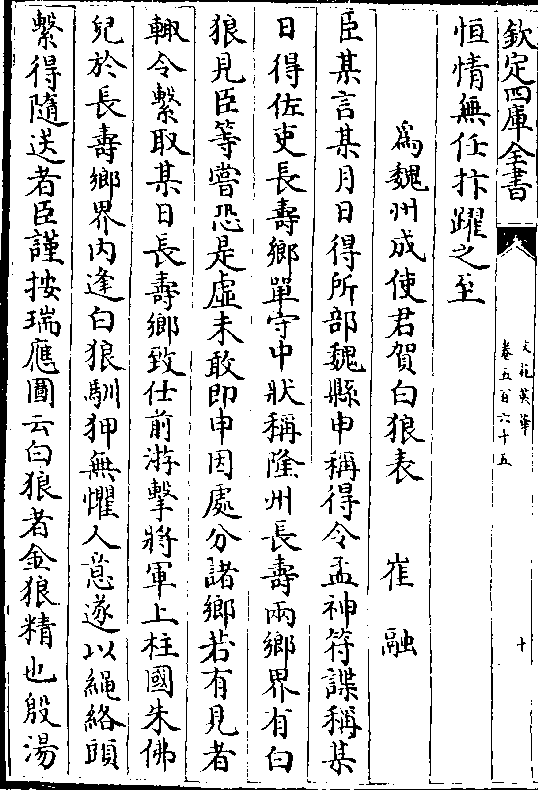 欽定四庫全書
文苑英華
卷五百六十五
十
恒情無任抃躍之至
爲魏州成使君賀白狼表 崔融
臣某言某月日得所部魏縣申稱得令孟神符諜稱某
日得佐吏長壽鄉單守中狀稱隆州長壽兩鄉界有白
狼見臣等嘗恐是虛未敢即申因處分諸鄉若有見者
輙令繫取某日長壽鄉致仕前游擊將軍上柱國朱佛
兒於長壽鄉界内逢白狼馴狎無懼人意遂以繩絡頭
繫得隨送者臣謹按瑞應圖云白狼者金狼精也殷湯